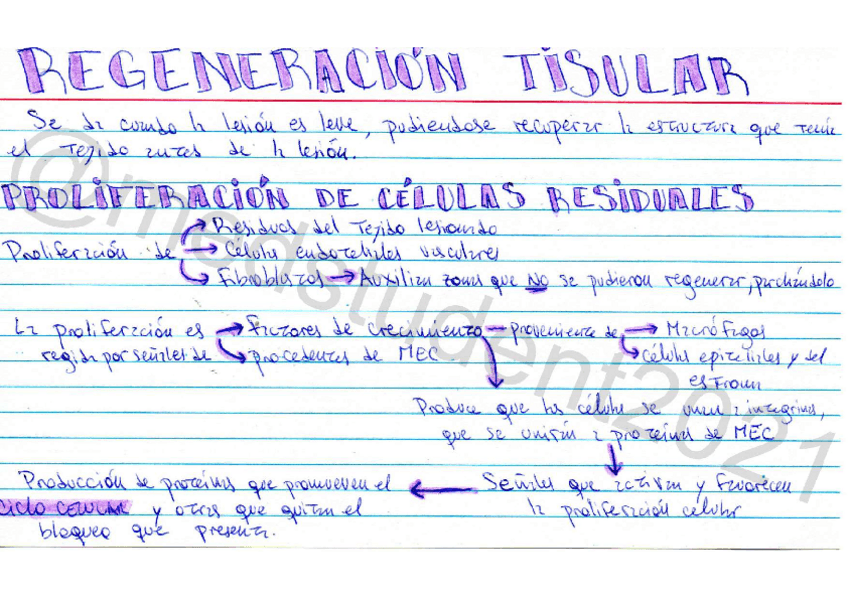 REGENERACIÓN TISULAR
Se da cuando la lesión es leve, pudiendose recuperar la estructura que tenía
el tejido antes de la lesión.
PROLIFERACIÓN DE CÉLULAS RESIDUALES
→ Residuos del tejido lesionado
Proliferación de → Células endoteliales vasculares
→ Fibroblastos → Auxilian zonas que NO se pudieron regenerar, parcheándolo
La proliferación es → Factores de crecimiento → proveniente de → Macrófagos
regida por señales de → procedentes de MEC → células epiteliales y del
estroma
Produce que las células se unan a integrinas,
que se unirán a proteínas de MEC
Producción de proteínas que promueven el ← Señales que activan y favorecen
ciclo celular y otras que quitan el la proliferación celular
bloqueo que presenta.
@medstudent2021